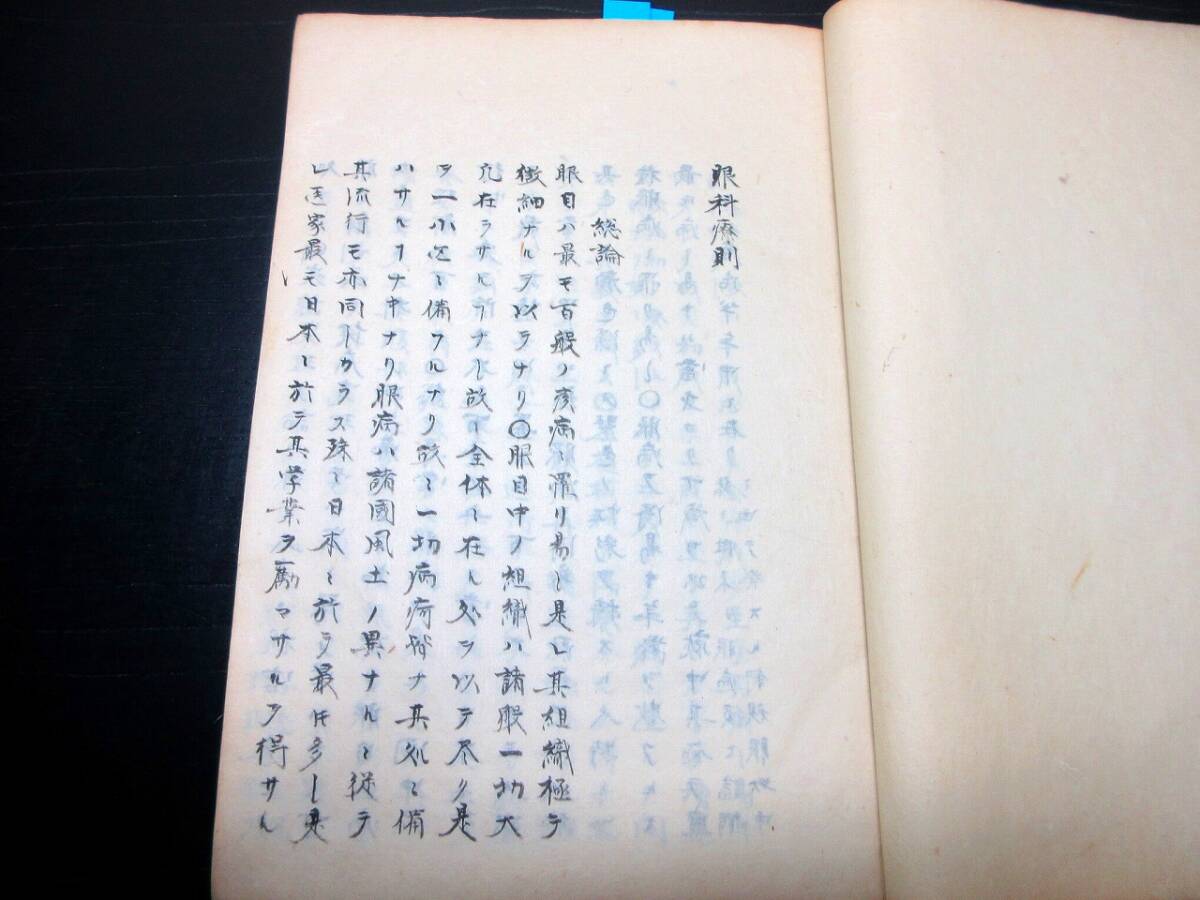 眼科療則
総論
眼目ハ最モ百般ノ疾病ニ罹リ易シ是レ其組織極テ
微細ナルヲ以テナリ〇眼目中ノ組織ハ諸般一切大
在ラサルヿナシ故ニ全体ニ在ル処ヲ以テ尽ク是
ヲ一小
ニ備フルナリ故ニ一切病
ナ其処ニ備
ハサルヿナキナリ眼病ハ諸國風土ノ異ナルニ従テ
其流行モ亦同シカラス殊ニ日本ニ於テ最
多シ是
レ医家最モ日本ニ於テ其学業ヲ励マサルヲ得サル